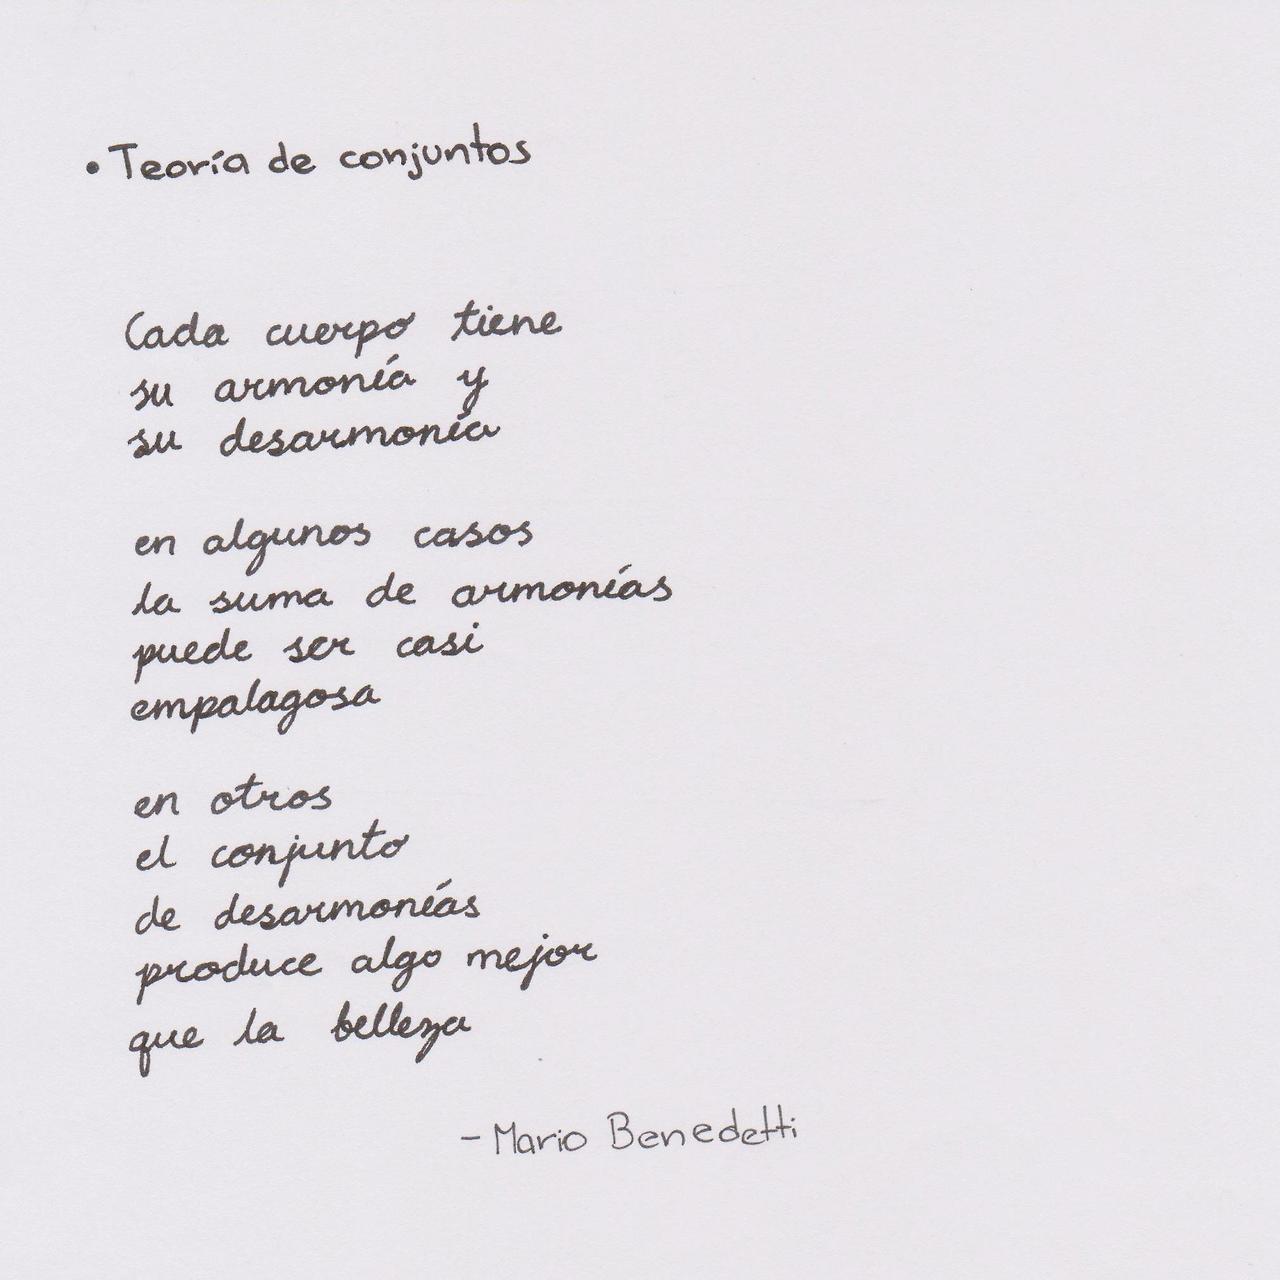 • Teoría de conjuntos
Cada cuerpo tiene
su armonía y
su desarmonía
en algunos casos
la suma de armonías
puede ser casi
empalagosa
en otros
el conjunto
de desarmonías
produce algo mejor
que la belleza
- Mario Benedetti